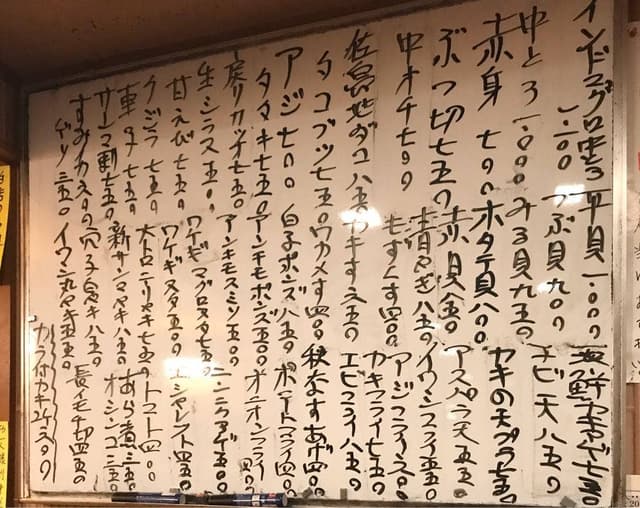 インドマグロ中とろ
一、二〇〇
中とろ 一、〇〇〇
赤身 七〇〇
ぶつ切 七五〇
中オチ 七〇〇
佐島地ダコ 八五〇
タコブツ 七五〇
アジ 七〇〇
タタキ 七五〇
戻りカツオ 七五〇
生シラス 五〇〇
甘えび 七五〇
クジラ 七五〇
サンマ刺 七五〇
平貝 一、〇〇〇
つぶ貝 九〇〇
みる貝 九五〇
ホタテ貝 八〇〇
赤貝 八五〇
青やぎ 八五〇
もずくす 四〇〇
カキす 六五〇
ワカメす 四〇〇
白子ポンズ 八五〇
アンキモポンズ 五〇〇
アンキモスミソ 五〇〇
ワケギマグロヌタ 七五〇
ワケギヌタ 五〇〇
大トロニツヤキ 七五〇
新サンマヤキ 八五〇
穴子白ヤキ 八五〇
イワシ丸ヤキ 五五〇
海鮮カキアゲ 七五〇
エビ天 八五〇
カキの天プラ 七五〇
アスパラ天 五五〇
イワシフライ 五五〇
アジフライ 六〇〇
カキフライ 七五〇
エビフライ 八五〇
秋なすあげ 四〇〇
ポテトフライ 四〇〇
オニオンフライ
ニンニクアゲ 五〇〇
エシャレット 四五〇
トマト 四〇〇
あら煮 三五〇
オシンコ 三五〇
長イモ千切 四五〇
カラ付カキ 2ケ 六〇〇